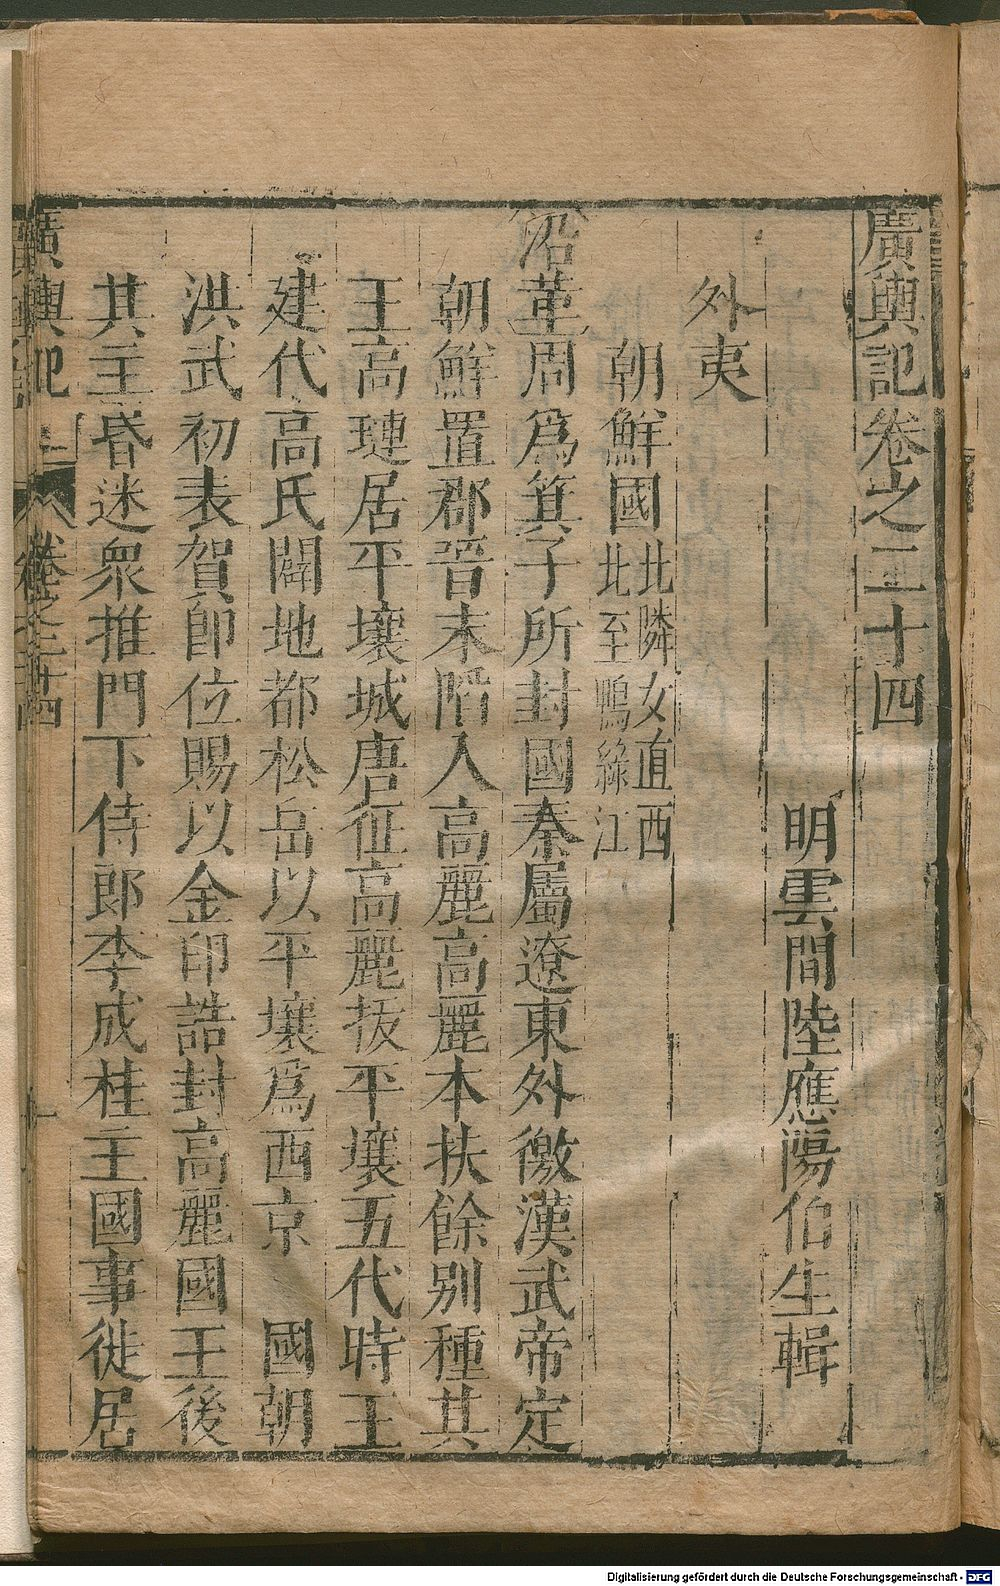 廣輿記卷之二十四
明雲間陸應陽伯生輯
外夷
朝鮮國北隣女直西北至鴨綠江
沿革周爲箕子所封國秦屬遼東外徼漢武帝定
朝鮮置郡晉末陷入高麗高麗本扶餘別種其
王高璉居平壤城唐征高麗拔平壤五代時王
建代高氏闢地都松岳以平壤爲西京 國朝
洪武初表賀即位賜以金印誥封高麗國王後
其主昏迷衆推門下侍郎李成桂主國事徙居
廣輿記 卷之二十四
Digitalisierung gefördert durch die Deutsche Forschungsgemeinschaft - DFG